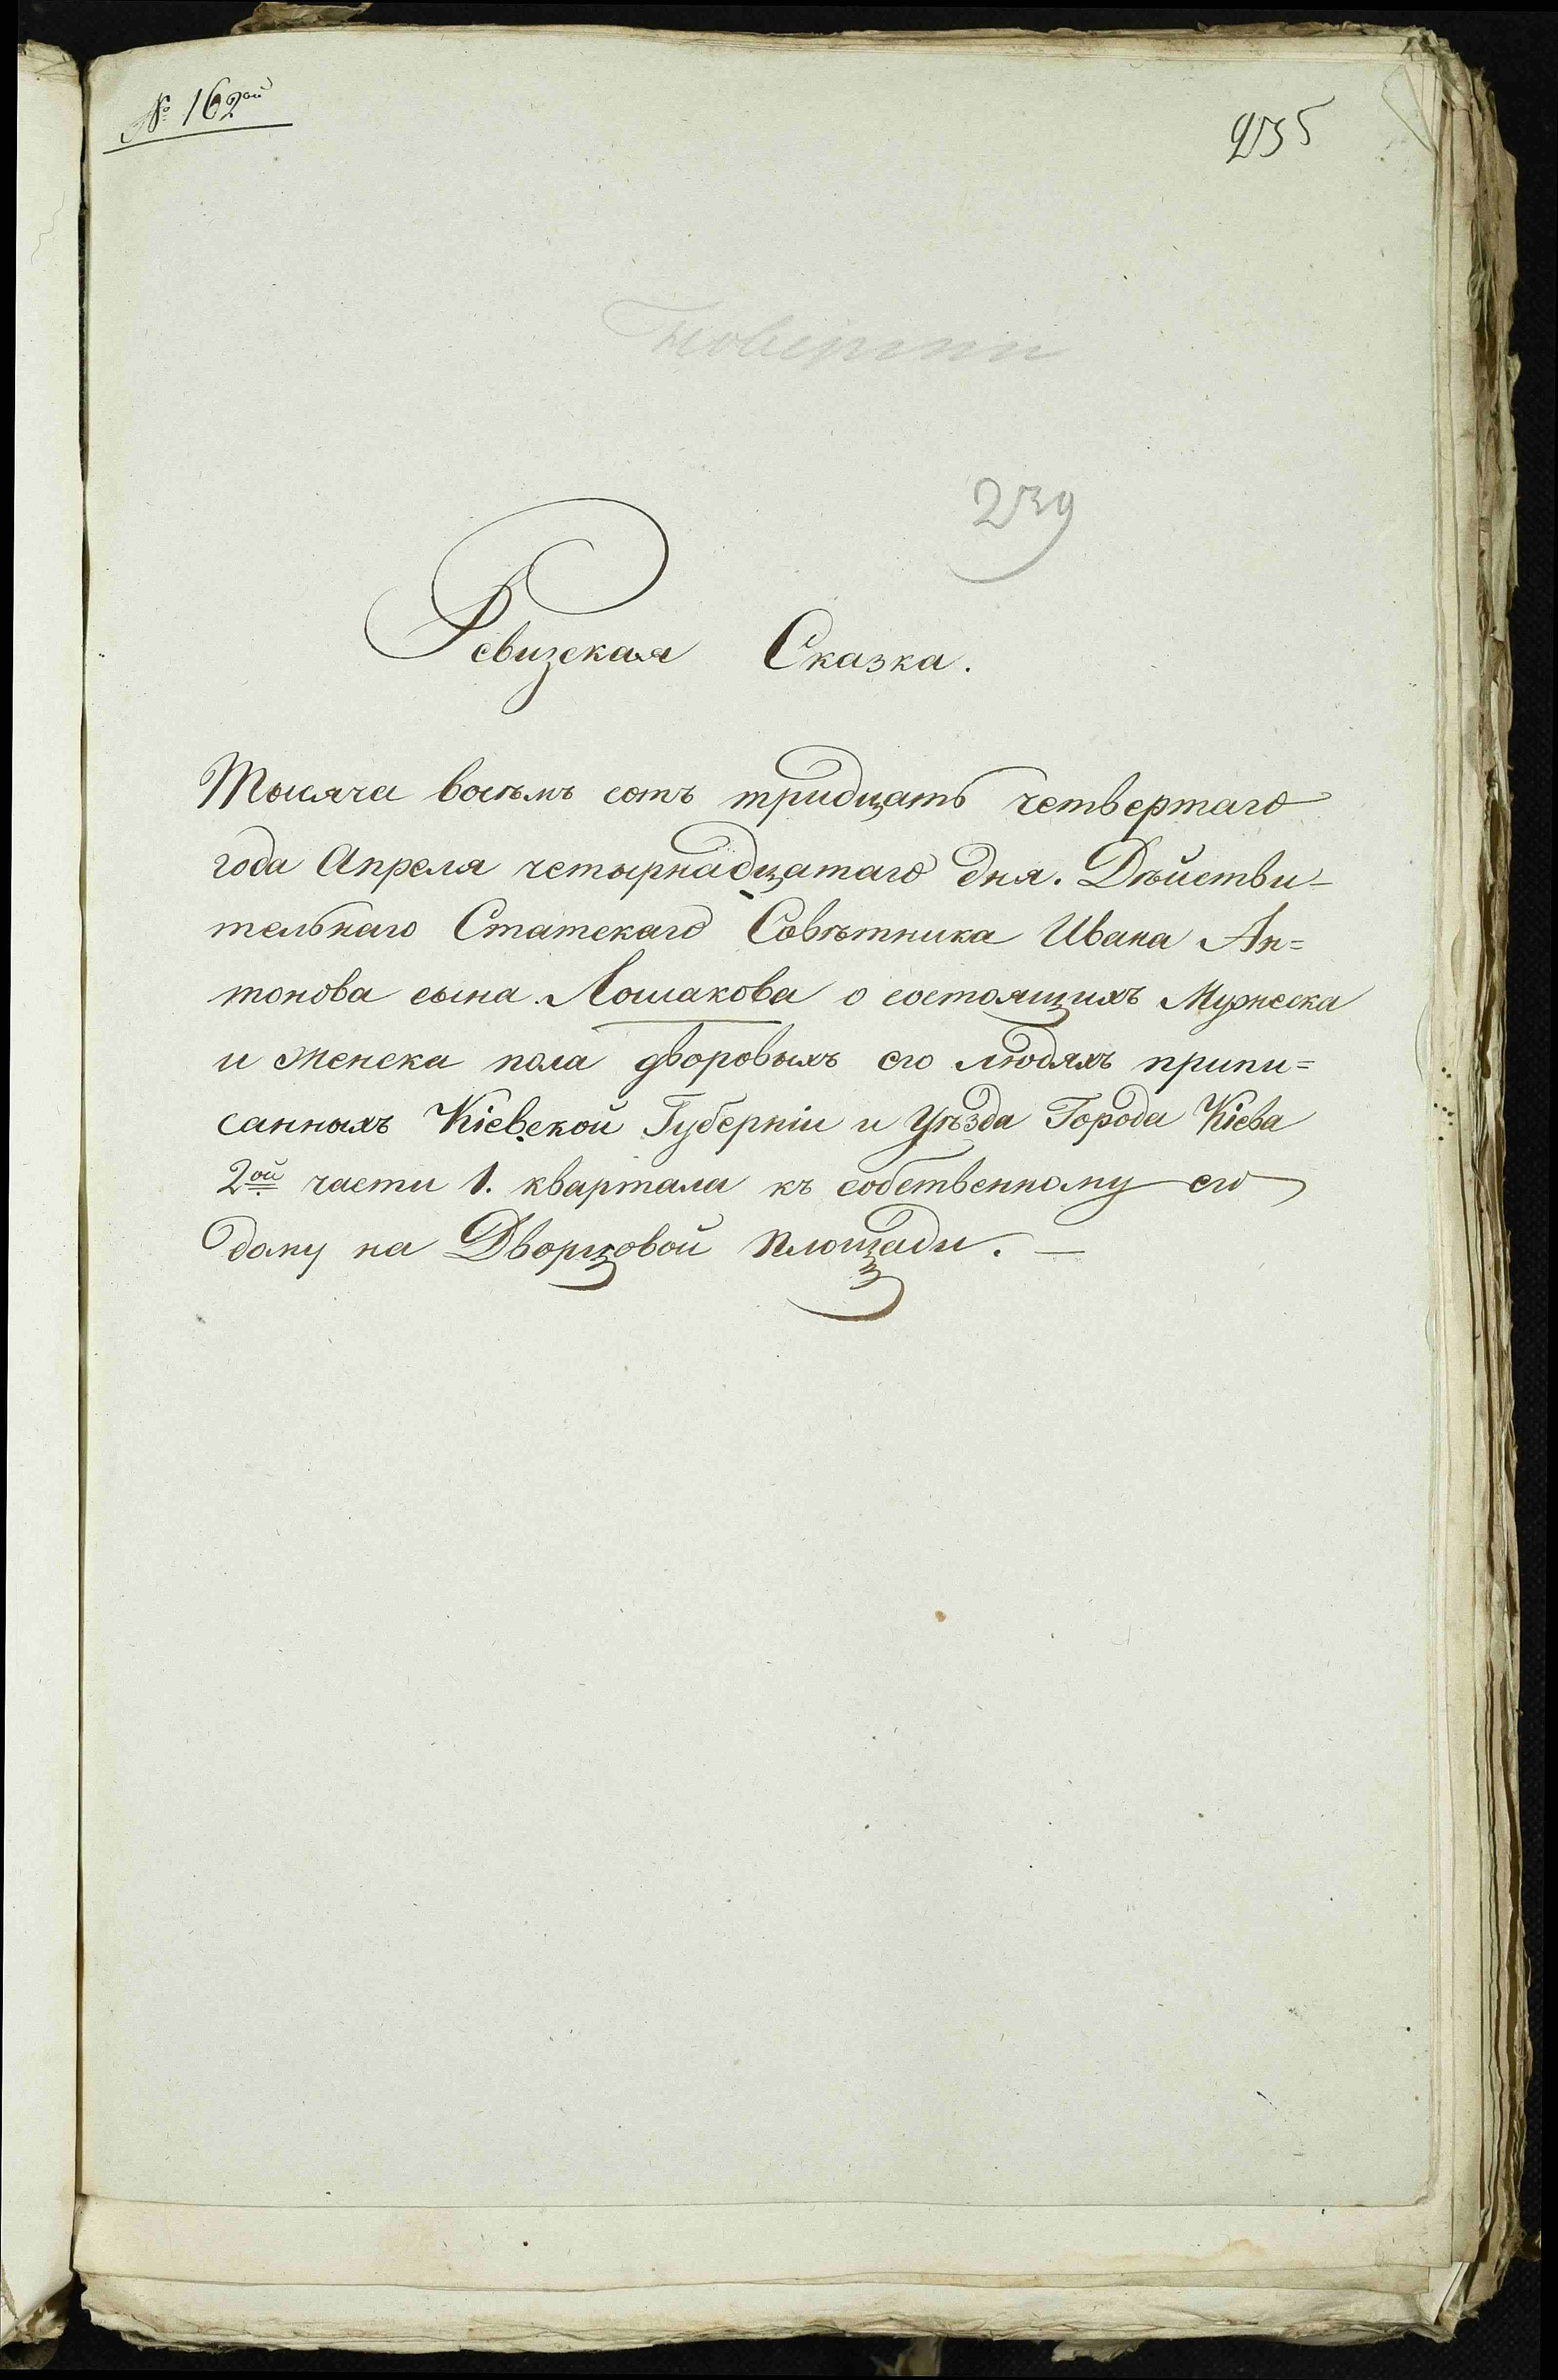 № 162ой
235
239
Ревизская Сказка.
Тысяча восемь сотъ тридцать четвертаго
года Апреля четырнадцатаго дня. Дѣйстви-
тельнаго Статскаго Совѣтника Ивана Ан=
тонова сына Лошакова о состоящихъ Мужеска
и женска пола дворовыхъ его людяхъ припи=
санныхъ Кіевской Губерніи и Уѣзда Города Кіева
2ой части 1. квартала къ собственному его
дому на Дворцовой площади. —